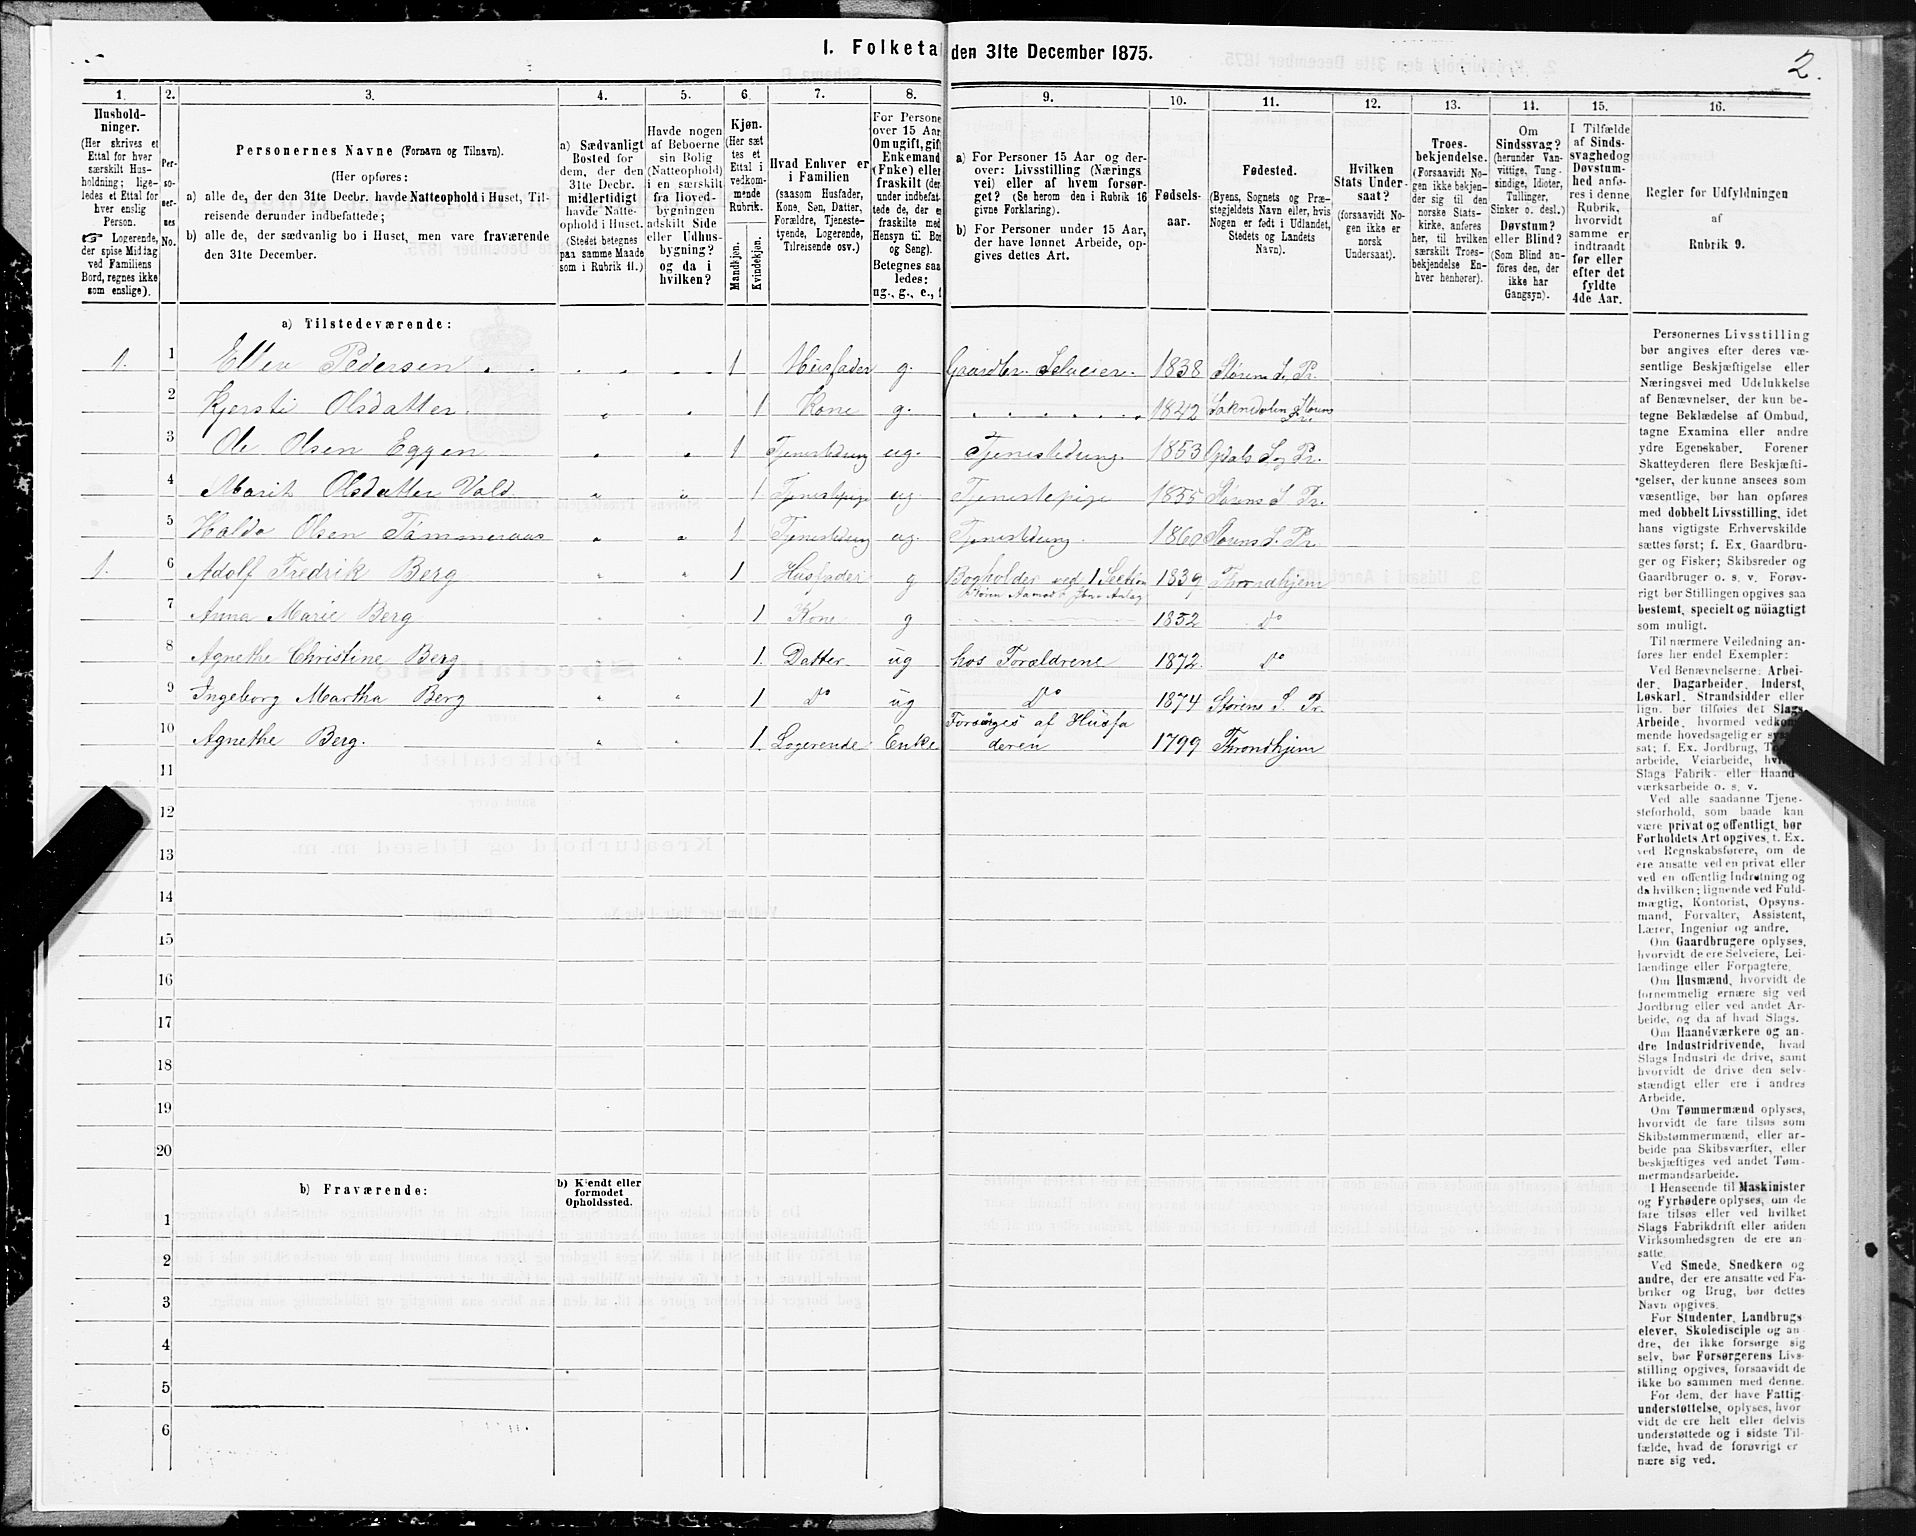 I. Folketa den 31te December 1875.
2.
1. 2. 3. 4. 5. 6. 7. 8. 9. 10. 11. 12. 13. 14. 15. 16.
Hushold-
ninger.
(Her skrives et
Ettal for hver
særskilt Hus-
holdning; lige-
ledes et Ettal for
hver enslig
Person.
☞ Logerende,
der spise Middag
ved Familiens
Bord, regnes ikke
som enslige).
Per-
so-
ner-
nes
No.
Personernes Navne (Fornavn og Tilnavn).
(Her opføres:
a) alle de, der den 31te Decbr. havde Natteophold i Huset, Til-
reisende derunder indbefattede;
b) alle de, der sædvanlig bo i Huset, men vare fraværende
den 31te December.
a) Sædvanligt
Bosted for
dem, der den
31te Decbr.
midlertidigt
havde Natte-
ophold i Huset.
(Stedet betegnes
paa samme Maade
som i Rubrik 11.)
Havde nogen
af Beboerne
sin Bolig
(Natteophold)
i en særskilt
fra Hoved-
bygningen
adskilt Side
eller Udhus-
bygning?
og da i
hvilken?
Kjøn.
(Her sæt
tes et
Ettal i
vedkom-
mende
Rubrik.
Mandkjøn.
Kvindekjøn.
Hvad Enhver er
i Familien
(saasom Husfader,
Kone, Søn, Datter,
Forældre, Tjeneste-
tyende, Logerende,
Tilreisende osv.)
For Persone
over 15 Aar
Om ugift, gif
Enkemand
(Enke) eller
fraskilt (der
under indbefat
tede de, der e
fraskilte med
Hensyn til. Bo
og Seng).
Betegnes saa
ledes:
ug., g., e., f
a) For Personer 15 Aar og der-
over: Livsstilling (Nærings
vei) eller af hvem forsør-
get? (Se herom den i Rubrik 16
givne Forklaring).
b) For Personer under 15 Aar,
der have lønnet Arbeide, op-
gives dettes Art.
Fødsels-
aar.
Fødested.
(Byens, Sognets og Præ-
stegjeldets Navn eller, hvis
Nogen er født i Udlandet,
Stedets og Landets
Navn).
Hvilken
Stats Under-
saat?
(forsaavidt No-
gen ikke er
norsk
Undersaat).
Troes-
bekjendelse.
(Forsaavidt No-
gen ikke bekjen-
der sig til den
norske Stats-
kirke, anføres
her, til hvilken
særskilt Troes-
bekjendelse En-
hver henhører).
Om
Sindssvag?
(herunder Van-
vittige, Tung-
sindige, Idioter,
Tullinger,
Sinker o. desl.)
Døvstum?
eller Blind?
(Som Blind an-
føres den, der
ikke har
Gangsyn).
I Tilfælde
af Sinds-
svaghedog
Døvstum-
hed anfø-
res i denne
Rubrik,
hvorvidt
samme er
indtraadt
før eller
efter det
fyldte
4de Aar.
Regler for Udfyldningen
af
Rubrik 9.
a) Tilstedeværende:
1. 1 Ellen Pedersen 1 Husfader g. Gaardbr. Selveier. 1838 Størens S. Pr.
2 Kjersti Olsdatter 1 Kone g. 1842 Støren
3 Ole Olsen Eggen 1 Tjenestedreng ug. Tjenestedreng. 1853 Opdals S og Pr.
4 Marit Olsdatter Vold 1 Tjenestepige ug. Tjenestepige 1855 Størens S Pr.
5 Haldo Olsen Tømmeraas 1 Tjenestedreng ug. Tjenestedreng. 1860 Størens S. Pr.
1. 6 Adolf Fredrik Berg 1 Husfader g Bogholder ved 1 Section 1839 Throndhjem
Støren Aamodt Jbne Anlæg
7 Anna Marie Berg 1 Kone g 1852 Do
8 Agnethe Christine Berg 1. Datter ug hos Forældrene 1872. Do
9 Ingeborg Martha Berg 1 Do ug Do 1874 Størens S. Pr.
10 Agnethe Berg. 1. Logerende Enke Forsørges af Husfa
deren 1799 Throndhjem
11
12
13
14
15
16
17
18
19
20
b) Fraværende:
b) Kjendt eller
formodet
Opholdssted.
1
2
3
4
5
6
Personernes Livsstilling
bør angives efter deres væ-
sentlige Beskjæftigelse eller
Næringsvei med Udelukkelse
af Benævnelser, der kun be-
tegne Beklædelse af Ombud,
tagne Examina eller andre
ydre Egenskaber. Forener
Skatteyderen flere Beskjæfti-
gelser, der kunne ansees som
væsentlige, bør han opføres
med dobbelt Livsstilling, idet
hans vigtigste Erhvervskilde
sættes først; f. Ex. Gaardbru-
ger og Fisker; Skibsreder og
Gaardbruger o. s. v. Forøv-
rigt bør Stillingen opgives saa
bestemt, specielt og nöiagtigt
som muligt.
Til nærmere Veiledning an-
føres her endel Exempler:
Ved Benævnelserne: Arbei-
der, Dagarbeider, Inderst,
Løskarl, Strandsidder eller
lign. bør tilføies det Slags
Arbeide, hvormed vedkom-
mende hovedsagelig er sys
sat; f. Ex. Jordbrug, T
arbeide, Veiarbeide, hv
Slags Fabrik- eller Haand-
værksarbeide o. s. v.
Ved alle saadanne Tjene-
steforhold, som baade kan
være privat og offentligt, bør
Forholdets Art opgives, t. Ex.
ved Regnskabsførere, om de
ere ansatte ved en privat eller
ved en offentlig Indretning og
da hvilken; lignende ved Fuld-
mægtig, Kontorist, Opsyns-
mand, Forvalter, Assistent,
Lærer, Ingeniør og andre.
Om Gaardbrugere oplyses,
hvorvidt de ere Selveiere, Lei-
lændinge eller Forpagtere.
Om Husmænd, hvorvidt de
fornemmelig ernære sig ved
Jordbrug eller ved andet Ar-
beide, og da af hvad Slags.
Om Haandværkere og an-
dre Industridrivende, hvad
Slags Industri de drive, samt
hvorvidt de drive den selv-
stændigt eller ere i andres
Arbeide.
Om Tømmermænd oplyses,
hvorvidt de fare tilsøs som
Skibstømmermænd, eller ar-
beide paa Skibsværfter, eller
beskjæftiges ved andet Tøm-
mermandsarbeide.
I Henseende til Maskinister
og Fyrbødere oplyses, om de
fare tilsøs eller ved hvilket
Slags Fabrikdrift eller anden
Virksomhedsgren de ere an-
satte.
Ved Smede, Snedkere og
andre, der ere ansatte ved Fa-
briker og Brug, bør dettes
Navn opgives.
For Studenter, Landbrugs-
elever, Skoledisciple og an-
dre, der ikke forsørge sig
selv, bør Forsørgerens Livs-
stilling opgives, forsaavidt de
ikke bo sammen med denne.
For dem, der have Fattig-
understøttelse, oplyses, hvor
vidt de ere helt eller delvis
understøttede og i sidste Til-
fælde, hvad de forøvrigt er
nære sig ved.